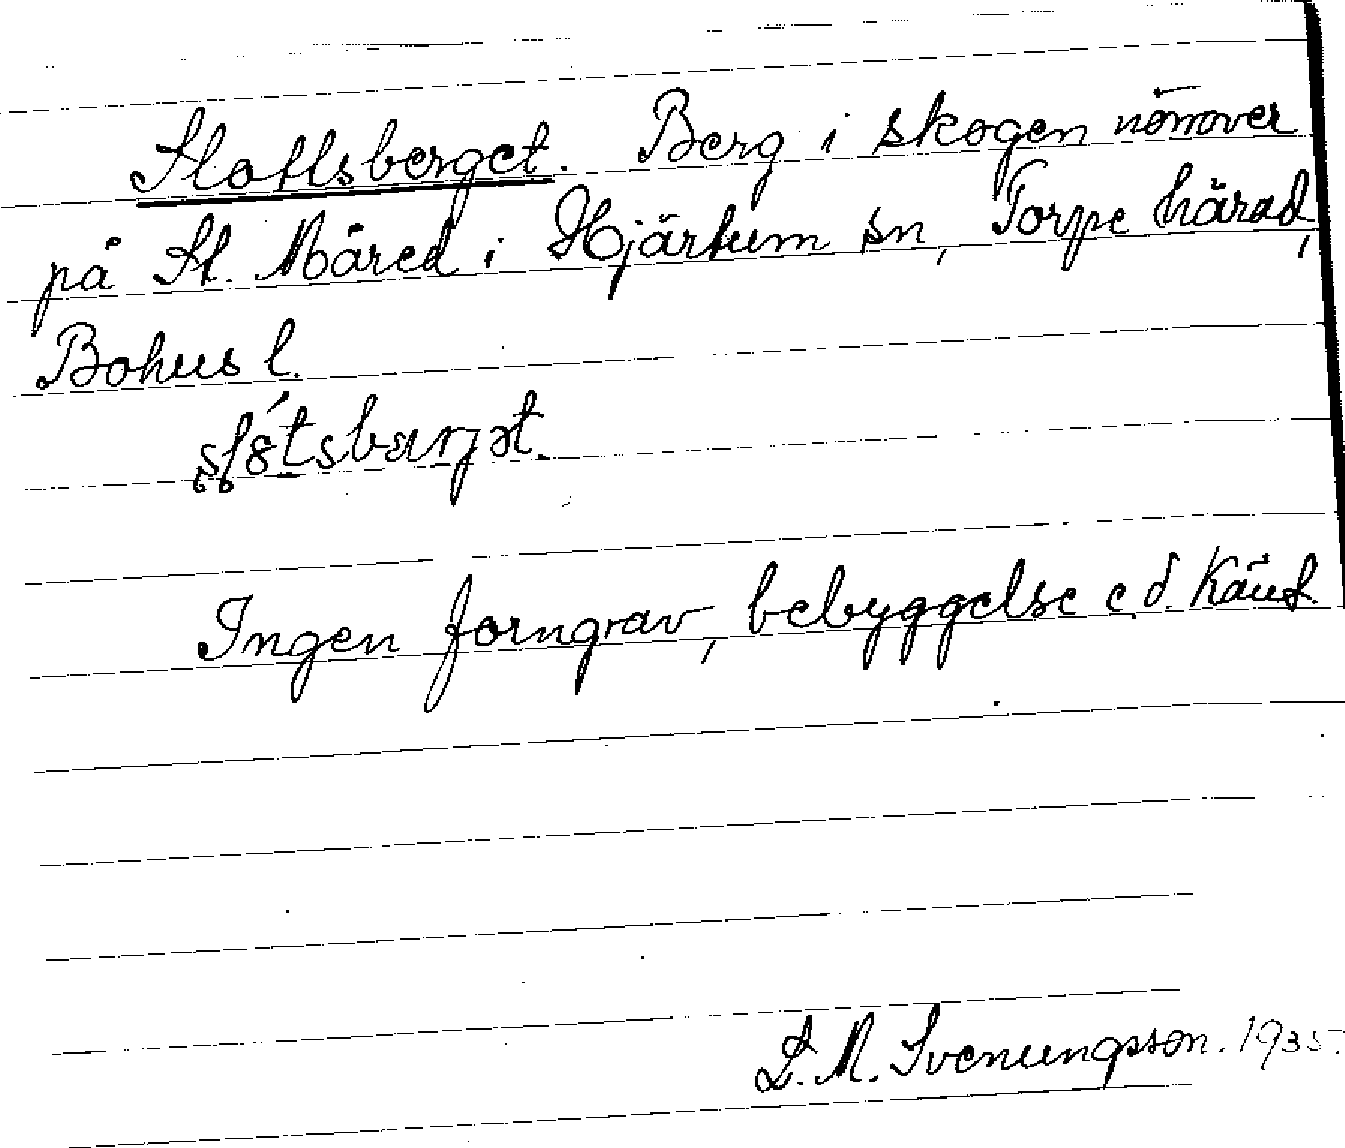 Slottsberget. Berg i skogen norrover
på St. Måred i Hjärtum sn, Torpe härad,
Bohus l.
Ingen forngrav, bebyggelse e.d. känd.
L. M. Svenungsson. 1935.